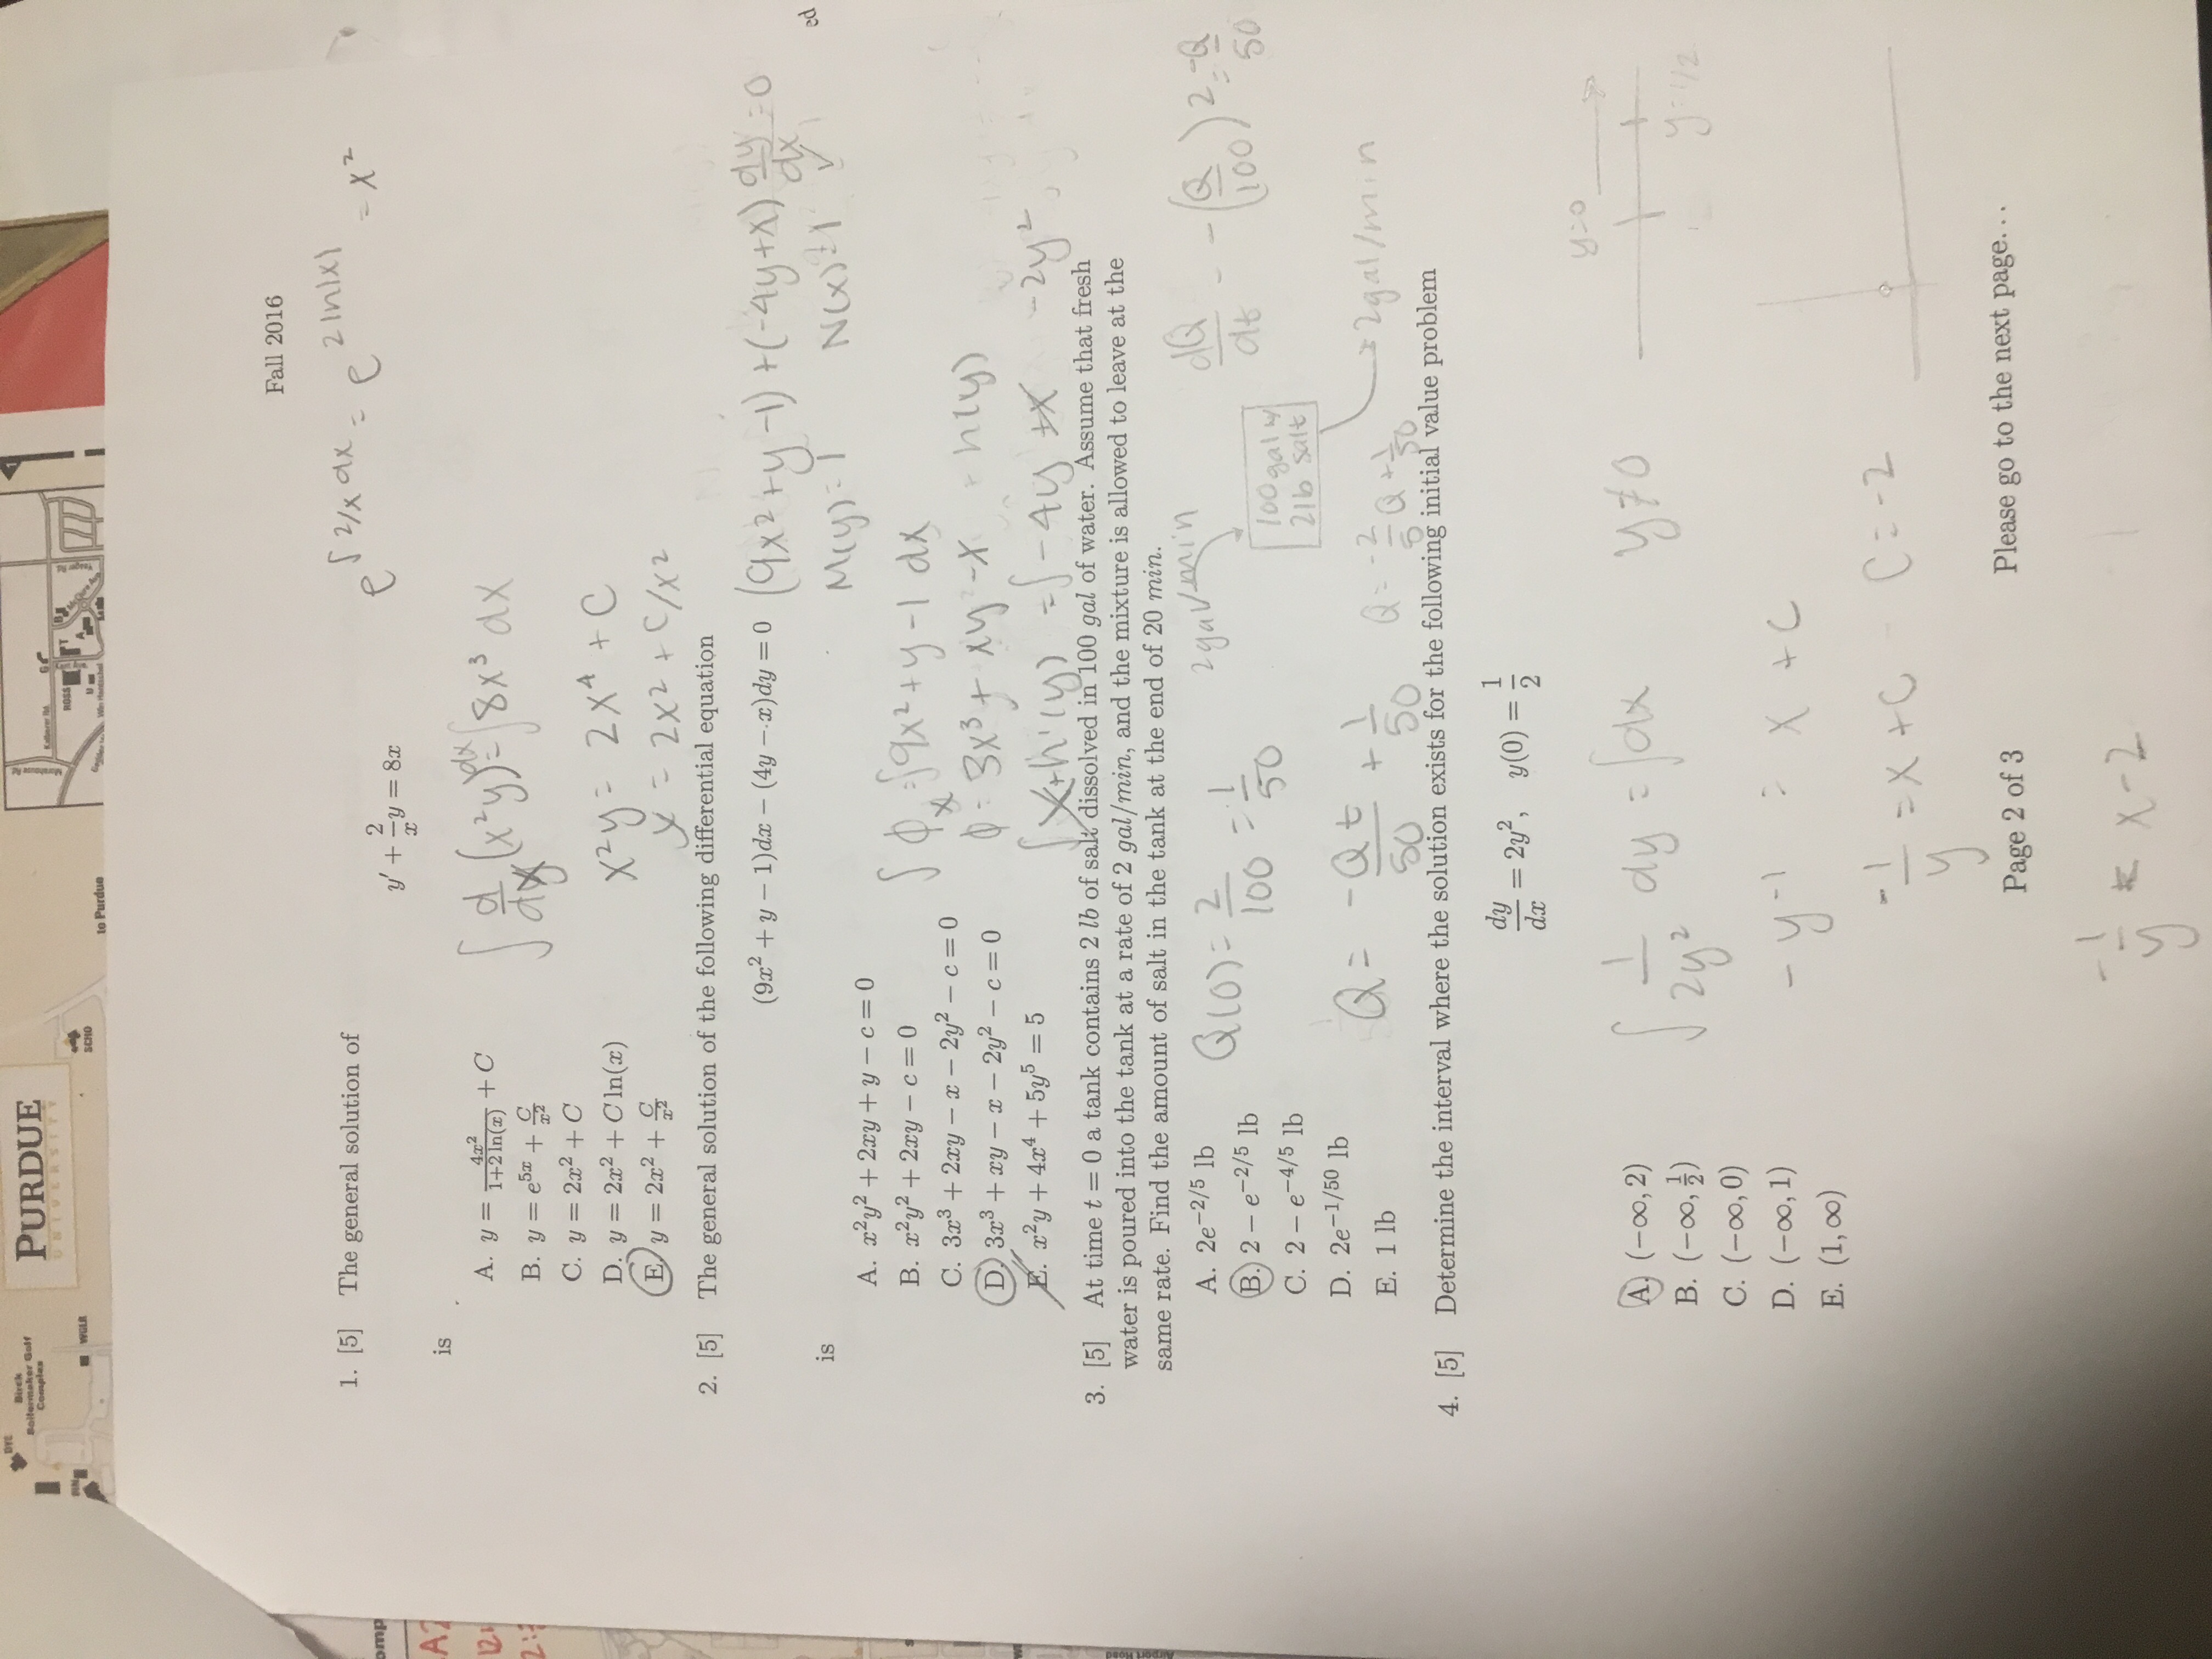 DYE
Birck
Boilermaker Golf
Complex
PURDUE
UNIVERSITY
WGLR
SCHO
to Purdue
Kalberer Rd.
ROSS
T
A
U
Yeager Rd.
1
omp
12:
2:
ed
Fall 2016
1. [5] The general solution of
y′ + 2/x y = 8x
e^∫2/x dx = e^2 ln|x| = x²
is
A. y = 4x²/(1+2 ln(x)) + C
B. y = e^5x + C/x²
C. y = 2x² + C
D. y = 2x² + C ln(x)
E. y = 2x² + C/x²
∫ d/dx (x²y) dx = ∫8x³ dx
x²y = 2x⁴ + C
y = 2x² + C/x²
2. [5] The general solution of the following differential equation
(9x² + y − 1)dx − (4y − x)dy = 0
(9x²+y−1)+(−4y+x) dy/dx = 0
M(y)=1 N(x)=1 ✓
is
A. x²y² + 2xy + y − c = 0
B. x²y² + 2xy − c = 0
C. 3x³ + 2xy − x − 2y² − c = 0
D. 3x³ + xy − x − 2y² − c = 0
E. x²y + 4x⁴ + 5y⁵ = 5
∫ϕx = ∫9x²+y−1 dx
ϕ = 3x³ + xy − x + h(y)
∫x+h'(y) = ∫−4y +x −2y²
3. [5] At time t = 0 a tank contains 2 lb of salt dissolved in 100 gal of water. Assume that fresh
water is poured into the tank at a rate of 2 gal/min, and the mixture is allowed to leave at the
same rate. Find the amount of salt in the tank at the end of 20 min.
A. 2e^−2/5 lb
B. 2 − e^−2/5 lb
C. 2 − e^−4/5 lb
D. 2e^−1/50 lb
E. 1 lb
Q(0) = 2/100 = 1/50
2gal/min
100gal w/
2lb salt
→2gal/min
dQ/dt = −(Q/100)2 = −Q/50
Q = −Qt/50 + 1/50
Q = −2/5 Q + 1/50
4. [5] Determine the interval where the solution exists for the following initial value problem
dy/dx = 2y², y(0) = 1/2
A. (−∞, 2)
B. (−∞, 1/2)
C. (−∞, 0)
D. (−∞, 1)
E. (1, ∞)
∫ 1/2y² dy = ∫dx y≠0
y=0
y=1/2
−y⁻¹ = x + C
−1/y = x + C C = −2
Page 2 of 3
Please go to the next page. . .
−1/y = x−2